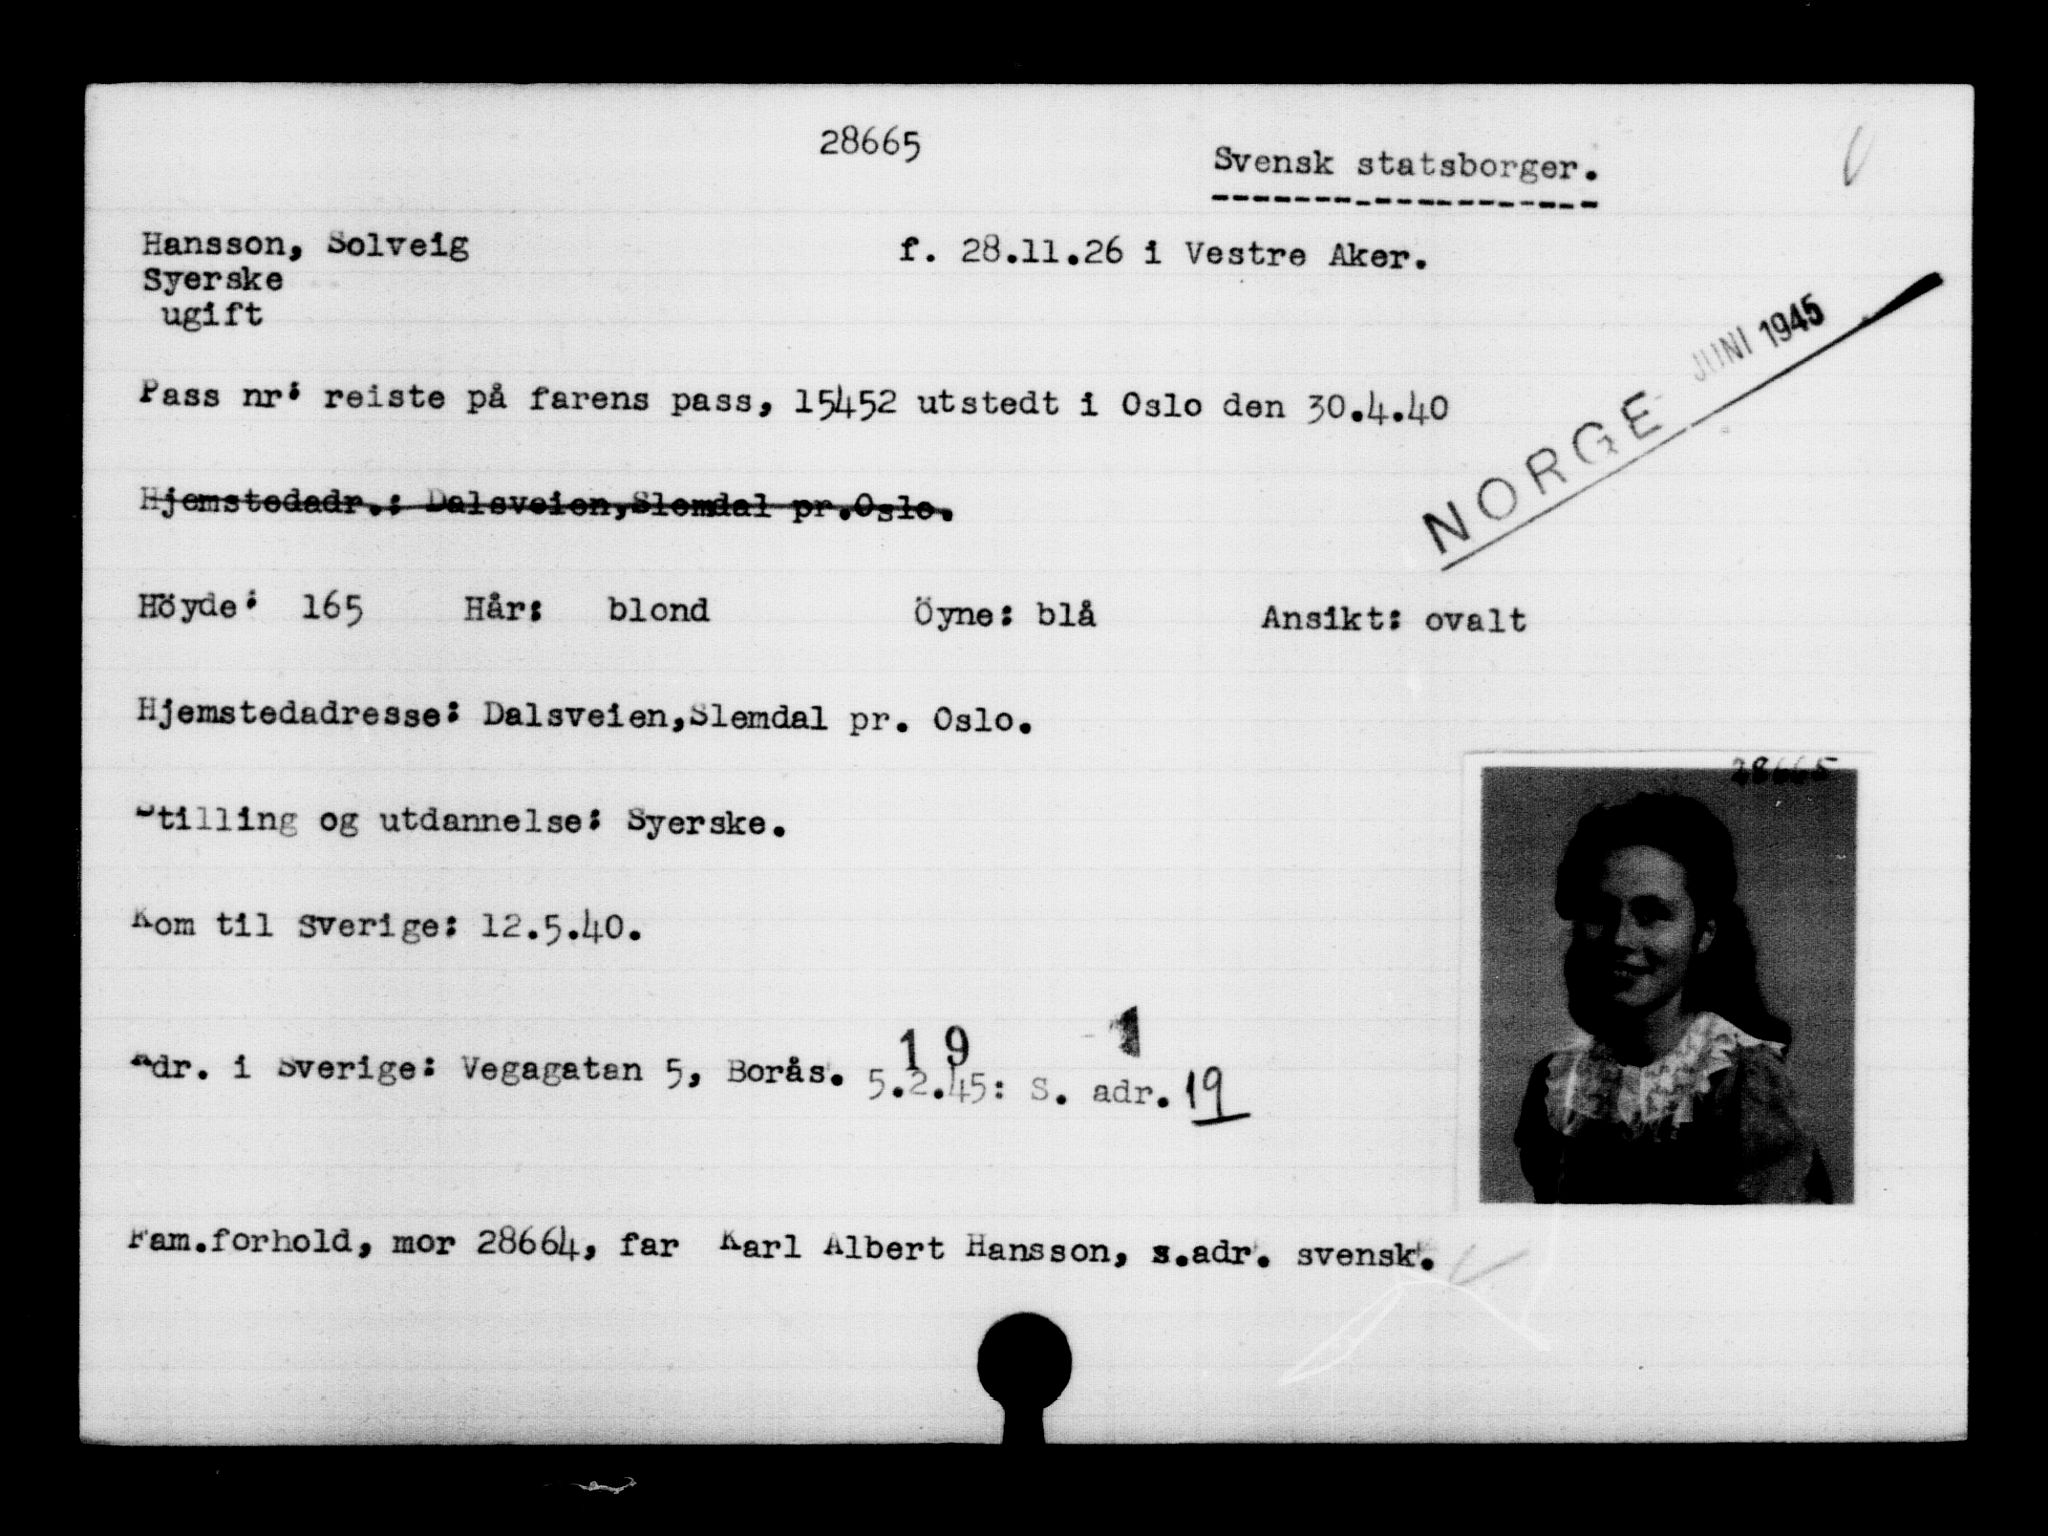 28665
Svensk statsborger.
Hansson, Solveig f. 28.11.26 i Vestre Aker.
Syerske
ugift
NORGE JUNI 1945
Pass nr: reiste på farens pass, 15452 utstedt i Oslo den 30.4.40
Hjemstedadr.: Dalsveien,Slemdal pr.Oslo.
Höyde: 165 Hår: blond Öyne: blå Ansikt: ovalt
Hjemstedadresse: Dalsveien,Slemdal pr. Oslo.
28665
Stilling og utdannelse: Syerske.
Kom til Sverige: 12.5.40.
19 1
Adr. i Sverige: Vegagatan 5, Borås. 5.2.45: S. adr. 19
Fam.forhold, mor 28664, far Karl Albert Hansson, s.adr. svensk.